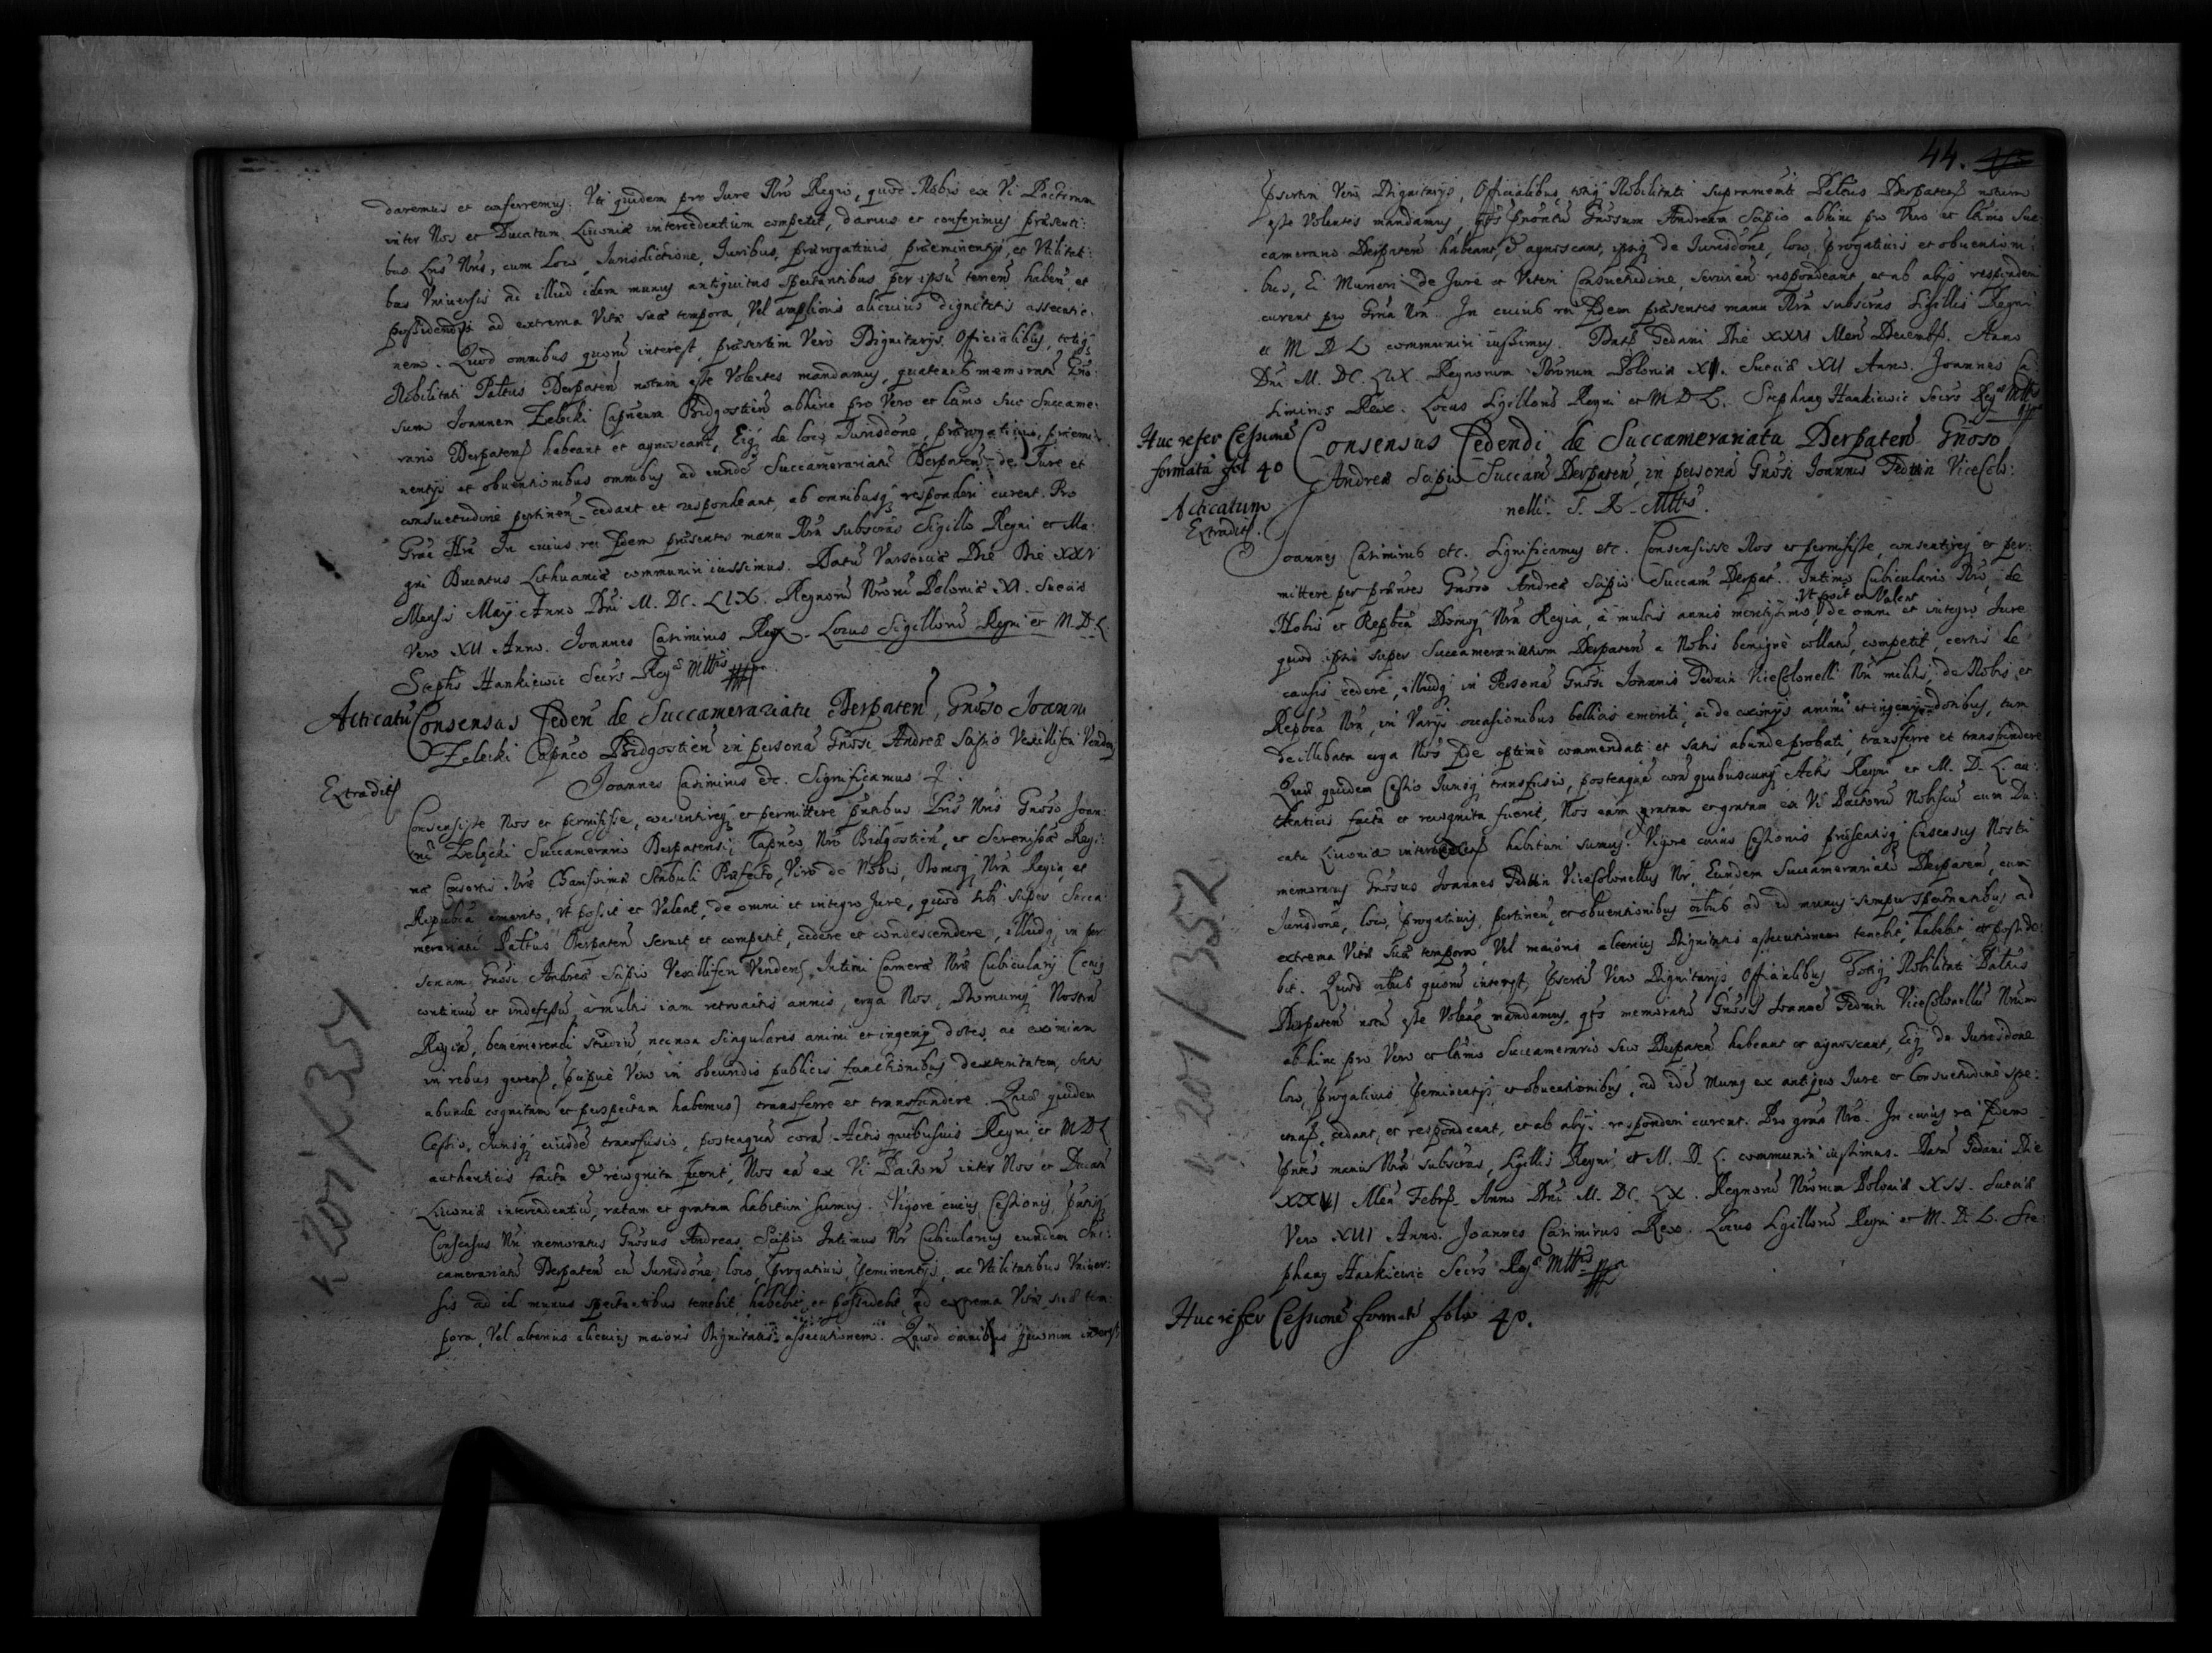 daremus et conferremus. Uti quidem pro Iure Nro Regio, quod Nobis ex Vi Pactorum
inter Nos et Ducatum Livoniæ intercedentium competit, damus et conferimus præsenti:
bus Lris Nris, cum Loco, Iurisdictione, Iuribus, prærogativis, præeminentijs, et Utilitati:
bus Universis ad illud idem munus antiquitus spectantibus per ipsū tenen̄ haben̄ et
possidendū ad extrema Vitæ suæ tempora, Vel amplioris alicuius dignitatis assecutio:
nem. Quod omnibus quorū interest, præsertim Vero Dignitarijs, Officialibus, totiq3
Nobilitati Pal̄tus Derpaten̄ notum esse Volentes mandamus, quatenus memoratū Gn̄o:
sum Joannem Zelecki Capneum Bidgostien̄ abhinc pro Vero et l̄timo suo Succame:
rario Derpaten̄ habeant et agnoscant, Eiq3 de loco Iurisdōne, prærogativis, præemi:
nentijs et obventionibus omnibus ad eundē Succamerariatū Derpaten̄ de Iure et
consuetudine pertinen̄ cedant et respondeant, ab omnibusq3 responderi curent. Pro
Grae Nra In cuius rei fidem præsentes manu Nra subscras Sigillo Regni et Ma:
gni Ducatus Lithuaniæ communiri iussimus. Datū Varsoviæ Die Die XXV
Mensis Maij Anno Dni M. DC. LIX. Regnorū Nrorū Poloniæ XI. Sueciæ
Vero XII Anno. Joannes Casimirus Rex. Locus Sigillorū Regni et M. D. L
Stephs Hankiewic Secrs Regæ Mttis
Acticatū Consensus Ceden̄ de Succamerariatu Derpaten̄, Gnōso Joanni
Zelecki Capneo Bidgostien̄ in personā Gnōsi Andreæ Scipio Vexilliferi Venden̄
Extradit
Joannes Casimirus etc. Significamus
Consensisse Nos et permisisse, consentireq3 et permittere pn̄tibus Lris Nris Gnōso Joan:
ni Zelecki Succamerario Derpatensi, Capneo Nro Bidgostien̄, et Serenissæ Regi:
næ Consortis Nræ Charissimæ Stabuli Præfecto, Viro de Nobis, Domoq3 Nra Regia, et
Republca emerito, Ut possit et Valeat, de omni et integro Iure, quod sibi super Succa:
merariatū Pal̄tus Derpaten̄ servit et competit, cedere et condescendere, illudq3 in per:
sonam Gnōsi Andreæ Scipio Vexilliferi Venden̄, Intimi Cameræ Nræ Cubicularij (cuius
continuū et indefessū à multis iam retroactis annis, erga Nos, Domumq3 Nostrā
Regiā, benemerendi studiū, necnon singulares animi et ingenij dotes, ac eximiam
in rebus geren̄, p̄cipue Vero in obeundis publicis functionibus dexteritatem, satis
abunde cognitam et perspectam habemus) transferre et transfundere. Quæ quidem
Cessio, Iurisq3 eiusdē transfusio, posteaquā corā Actis quibusvis Regni, et M D L
authenticis facta et recognita fuerit, Nos eā ex Vi Pactorū inter Nos et Ducatū
Livoniæ intercedentiū, ratam et gratam habituri sumus. Vigore cuius Cessionis, pn̄tisq3
Consensus Nri memoratus Gnōsus Andreas Scipio Intimus Nr Cubicularius eundem Suc:
camerariatū Derpaten̄ cū Iurisdōne, loco, p̄rogativis, p̄eminentijs, ac Utilitatibus Univer:
sis ad id munus spectantibus tenebit, habebit et possidebit, ad extrema Vitæ suæ tem:
pora, Vel alterius alicuius maioris Dignitatis assecutionem. Quod omnibus quorum interest
K 201/351
44.
P̄sertim Vero Dignitarijs, Officialibus, totiq3 Nobilitati supramemti Pal̄tus Derpaten̄ notum
esse Volentes mandamus, Gnōsum Andream Scipio abhinc pro Vero et l̄timo Suc:
camerario Derpaten̄ habeant, et agnoscant, ipsiq3 de Iurisdōne, loco, p̄rogativis et obventioni:
bus, Ei Muneri de Jure et Veteri Consuetudine servien̄ respondeant, et ab alijs responderi
curent pro Grā Nra. In cuius rei fidem præsentes manu Nra subscras Sigillis Regni
et M D L communiri iussimus. Datū Gedani Die XXVI Men̄ Decemb. Anno
Dni M. DC. LIX. Regnorum Nrorum Poloniæ XI. Sueciæ XII Anno. Joannes Ca:
simirus Rex. Locus Sigillorū Regni et M D L. Stephanus Hankiewic Secrs Regæ Mttis
Huc refer Cessionē
formatā fol 40
Acticatum
Extradit.
Consensus Cedendi de Succamerariatu Derpaten̄ Gnōso
Andreæ Scipio Succamo Derpaten̄, in personā Gnōsi Joannis Tedtvin ViceColo:
nelli. S. R. Mttis.
Joannes Casimirus etc. Significamus etc. Consensisse Nos et permisisse, consentireq3 et per:
mittere per pn̄tes Gnōso Andreæ Scipio Succam Derpat. Intimo Cubiculario Nro, de
Nobis et Repbca Domoq3 Nra Regia, à multis annis meritissimo, Ut possit et Valeat de omni et integro Jure
quod ipsi super Succamerariatum Derpaten̄ a Nobis benignè collatū, competit, certis de
causis cedere, illudq3 in Personā Gnōsi Joannis Tedtvin ViceColonelli Nri militis, de Nobis et
Repbca Nra, in Varijs occasionibus bellicis emeriti, ac de eximijs animi et ingenij dotibus, tum
de illibata erga Nos fide optimè commendati et satis abunde probati, transferre et transfundere
Quæ quidem Cessio Iurisq3 transfusio, posteaquā corā quibuscunq3 Actis Regni et M. D. L. au:
thenticis facta et recognita fuerit, Nos eam gratam et gratam ex Vi Pactorū Nobiscū cum Du:
catu Livoniæ habituri sumus. Vigore cuius Cessionis præsentisq3 Consensus Nostri
memoratus Gnōsus Joannes Tedtvin ViceColonellus Nr, Eundem Succamerariatū Derpaten̄, cum
Iurisdōne, loco, p̄rogativis, pertinen̄, et obventionibus oībus ad id munus semper spectantibus ad
extrema Vitæ suæ tempora, Vel maioris alterius Dignitatis assecutionem tenebit, habebit, et posside:
bit. Quod oībus quorū interest, p̄sertim Vero Dignitarijs, Officialibus Totiq3 Nobilitati Pal̄tus
Derpaten̄ notū esse Volen̄ mandamus, memoratū Gnōsū Joannē Tedtvin ViceColonellū Nrum
abhinc pro Vero et l̄timo Succamerario suo Derpaten̄ habeant et agnoscant, Eiq3 de Iurisdōne
loco, p̄rogativis p̄eminentijs et obventionibus, ad idē Munus ex antiquo Iure et Consuetudine spe:
ctan̄, cedant, et respondeant, et ab alijs responderi curent. Pro grā Nra. In cuius rei fidem
pn̄tes manu Nra subscras, Sigillis Regni, et M. D. L. communiri iussimus. Datū Gedani Die
XXVI Men̄ Febr. Anno Dni M. DC. LX. Regnorū Nrorum Poloniæ XII. Sueciæ
Vero XIII Anno. Joannes Casimirus Rex. Locus Sigillorū Regni et M. D. L. Ste:
phanus Hankiewic Secrs Regæ Mttis
Huc refer Cessionē formatā folio 40.
K 201/352